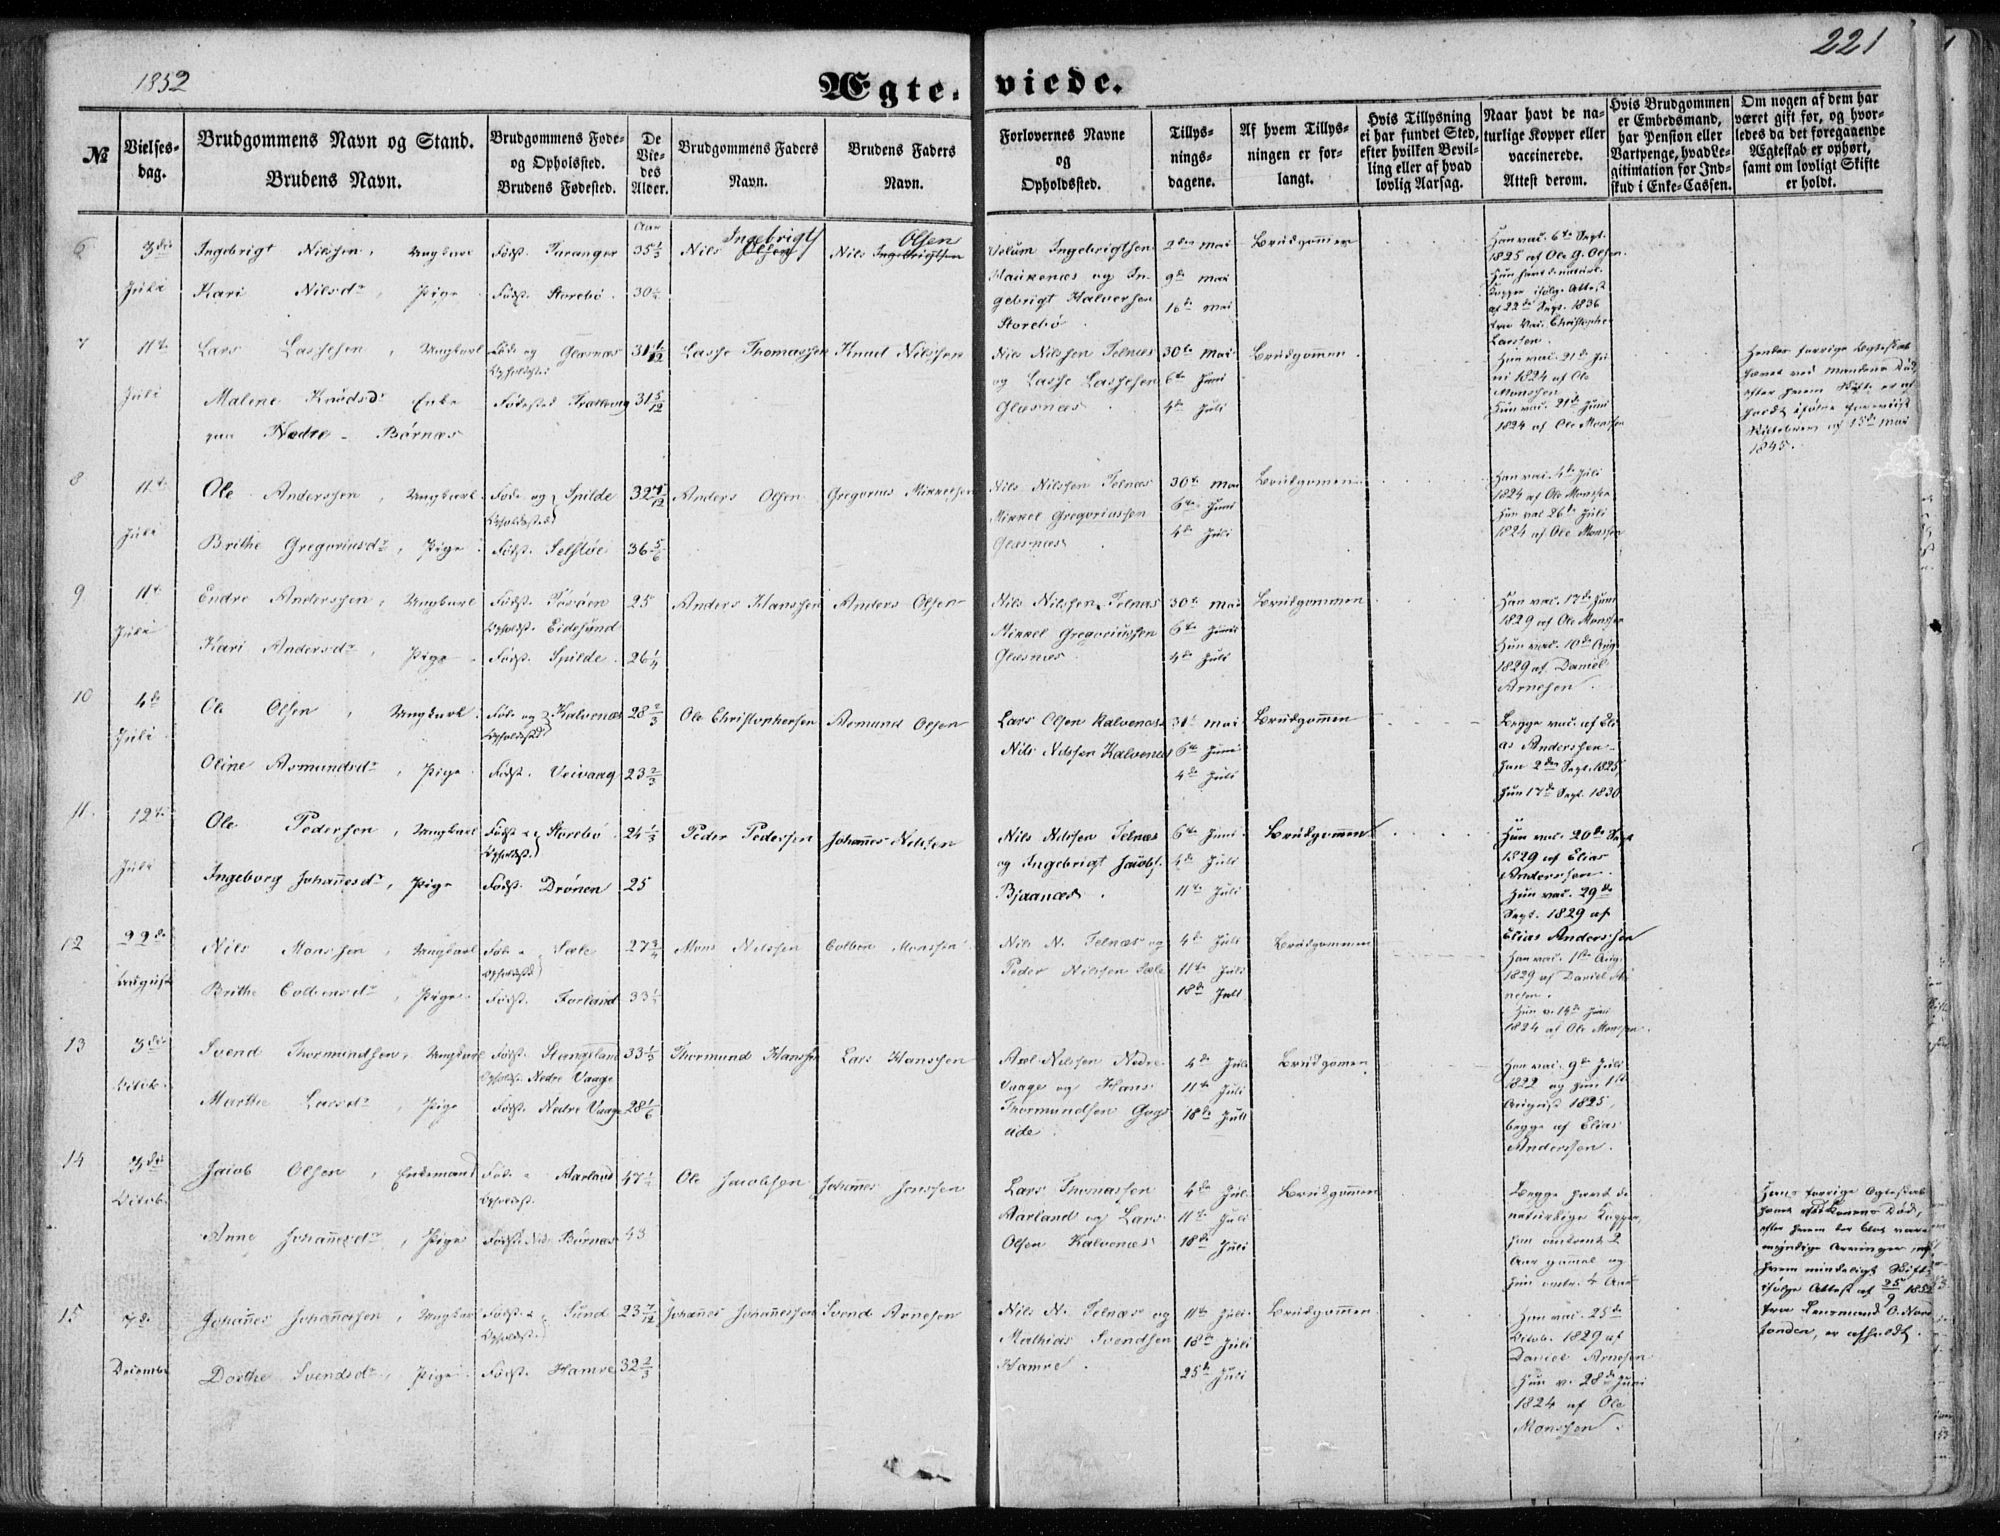 1852
221
Ægteviede.
№
Vielsesdag.
Brudgommens Navn og Stand.
Brudens Navn.
Brudgommens Føde- og Opholssted.
Brudens Fødested.
De Viedes Alder.
Brudgommens Faders Navn.
Brudens Faders Navn.
Forlovernes Navne og Opholdssted.
Tillysningsdagene.
Af hvem Tillysningen er forlangt.
Hvis Tillysning ei har fundet Sted, efter hvilken Bevilling eller af hvad lovlig Aarsag.
Naar havt de naturlige Kopper eller vaccinerede. Attest derom.
Hvis Brudgommen er Embedsmand, har Pension eller Vartpenge, hvad Legitimation for Indskud i Enke-Cassen.
Om nogen af dem har været gift før, og hvorledes da det foregaaende Ægteskab er ophørt, samt om lovligt Skifte er holdt.
6 3die Juli
Ingebrigt Nilssen, Ungkarl
Kari Nilsdr, Pige
Födst. Taranger
Födst. Storebö
Aar
35 1/2
30 1/2
Nils Ingebrigts Olsen
Nils Olsen Ingebrigtsen
Haukenæs og Ingebrigt Halversen
Storebö
2den Mai
9de Mai
16de Mai
Brudgommen
Han vac. 6te Sept. 1825 af Ole G. Olsen.
Hun havt de naturl. Kopper ifölge Attest af 22de Sept. 1836 fra Vac. Christopher Larssen.
7 11te Juli
Lars Lassesen, Ungkarl
Malene Knudsdr Enke
paa Nedre-Börnæs
Föde og Opholdsted Glæsnæs
Födested Trællevig
31 1/12
31 5/12
Lasse Thomassen
Knud Nilssen
Nils Nilssen Telnæs
og Lasse Lassesen
Glæsnæs
30te Mai
6te Juni
4de Juli
Brudgommen
Han vac. 21de Juni 1824 af Ole Monssen
Hun vac. 21de Juni 1824 af Ole Monssen
Hendes forrige Ægteskab hævet ved Mandens Död, efter hvem Skifte er af
15de Mai 1845.
8 11te Juli
Ole Anderssen, Ungkarl
Brithe Gregoriusdr, Pige
Föde og Opholdssted Spilde
Födst. Selstöe
32 7/12
36 5/6
Anders Olsen
Gregorius Mikkelsen
Nils Nilssen Telnæs
Mikkel Gregoriussen
Glæsnæs
30te Mai
6te Juni
4de Juli
Brudgommen
Han vac. 4de Juli 1824 af Ole Monssen
Hun vac 26de Juli 1824 af Ole Monssen
9 11te Juli
Endre Anderssen, Ungkarl
Kari Andersdr, Pige
Födst. Tösöen
Opholdst. Eidesund
Födst. Spilde
25
26 1/4
Anders Hanssen
Anders Olsen
Nils Nilssen Telnæs
Mikkel Gregoriussen
Glæsnæs
30te Mai
6te Juni
4de Juli
Brudgommen
Han vac. 17de Juni 1829 af Ole Monssen
Hun vac. 10de Aug. 1829 af Daniel Arnesen.
10 4de Juli
Ole Olsen, Ungkarl
Oline Asmundsdr, Pige
Föde og Opholdssted Kalvenæs
Födst. Veivaag
28 2/3
23 2/3
Ole Christophersen
Asmund Olsen
Lars Olsen Kalvenæs
Nils Nilssen Kalvenæs
31te Mai
6te Juni
4de Juli
Brudgommen
Begge vac. af Elias Anderssen
Han 2den Sept. 1825,
Hun 17de Sept. 1830
11. 12te Juli
Ole Pedersen, Ungkarl
Ingeborg Johañesdr, Pige
Födst. & Opholdst. Storebö
Födst. Drönen
24 1/3
25
Peder Pedersen
Johañes Nilssen
Nils Nilssen Telnæs
og Ingebrigt Jacobs.
Bjaanæs
6te Juni
4de Juli
11te Juli
Brudgommen
Han vac. 20de Sept 1829 af Elias Anderssen.
Hun vac. 29de Sept. 1829 af Elias Anderssen
12 22de August
Nils Monssen, Ungkarl
Brithe Colbensdr, Pige
Föde & Opholdssted Sæle
Födst. Forland
27 3/4
33 1/2
Mons Nilssen
Colben Monssen
Nils N. Telnæs og
Peder Nilssen Sæle
4de Juli
11te Juli
18de Juli
Brudgommen
Han vac. 1ste Aug. 1829 af Daniel Arnesen.
Hun v. 14de Juni 1824 af Ole Monssen.
13 3die Octob.
Svend Thormundsen, Ungkarl
Marthe Larsdr, Pige
Födst. Stangeland
Opholdst. Nedre Vaage
Födst. Nedre Vaage
33 1/3
28 1/6
Thormund Hanssen
Lars Hanssen
Axel Nilssen Nedre
Vaage og Hans
Thormundsen Gogseide.
4de Juli
11te Juli
18de Juli
Brudgomen
Han vac. 9de Juli 1822 og hun 1ste August 1825, begge af Elias Anderssen.
14 3die Octob.
Jacob Olsen, Enkemand
Anne Johañesdr, Pige
Föde & Opholdst. Aarland
Födst. Ned. Börnæs
47 1/2
43
Ole Jacobsen
Johañes Jonssen
Lars Thomassen
Aarland og Lars
Olsen Kalvenæs
4de Juli
11te Juli
18de Juli
Brudgommen
Begge havt de naturlige Kopper, han omtrent 2 Aar gammel og hun omtr. 4 Aar
Hans forrige Ægteskab hævet ved Konens Död, efter hvem der blot vare myndige Arvinger, mellem hvem mindeligt Skifte ifölge Attest af 25/9 1852 fra Lensmand O. Nordtveden, er afholdt.
15 7de Decembr
Johañes Johañessen, Ungkarl
Dorthe Svendsdr, Pige
Födst. & Opholdst. Sund
Födst. Hamre
23 7/12
32 2/3
Johañes Johañessen
Svend Arnesen
Nils N. Telnæs og
Mathias Svendsen
Hamre
11te Juli
18de Juli
25de Juli
Brudgommen
Han vac. 25de Octob. 1829 af Daniel Arnesen
Hun v. 28de Juni 1824 af Ole Monssen